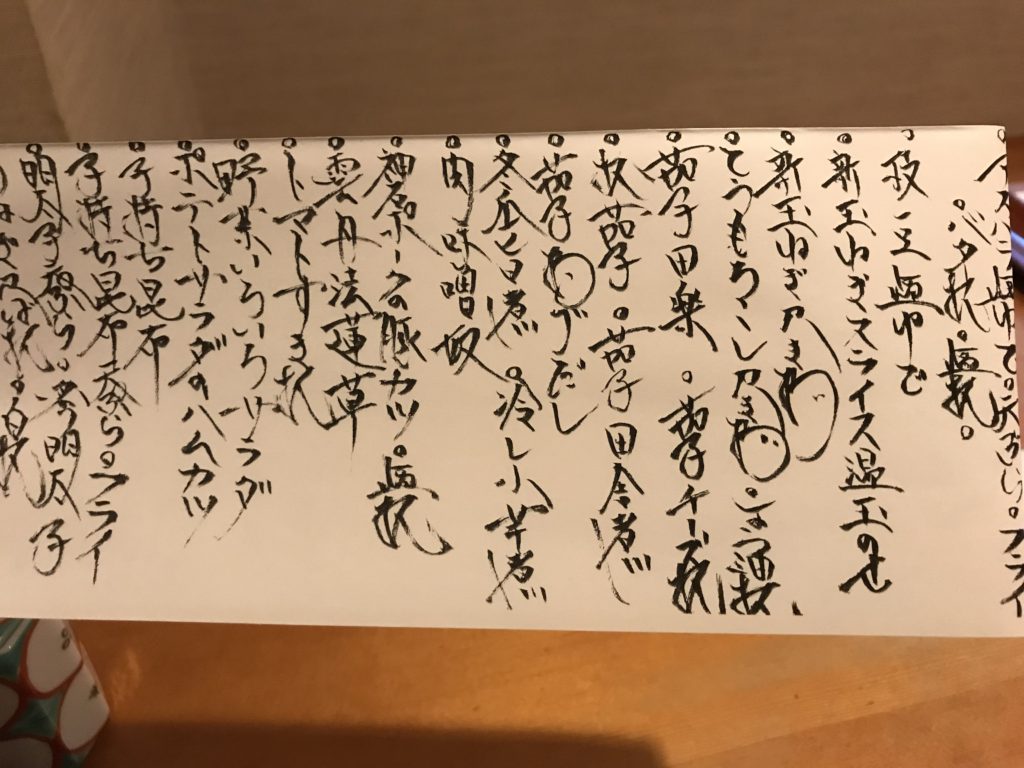 塩ゆで。天ぷら。フライ
。バタ焼。塩焼。
。枝豆塩ゆで
。新玉ねぎスライス温玉のせ
。新玉ねぎ丸焼
。とうもろこし丸焼。
。茄子田楽 。茄子チーズ焼
。焼茄子。茄子田舎煮
。茄子あげだし
。冬瓜白煮。冷し小芋煮
。肉味噌奴
ポークの豚カツ。塩焼
。雲丹法蓮草
。トマト
。野菜いろいろサラダ
。ポテトサラダのハムカツ
。子持ち昆布
。子持ち昆布天ぷら。フライ
。明太子天ぷら。明太子